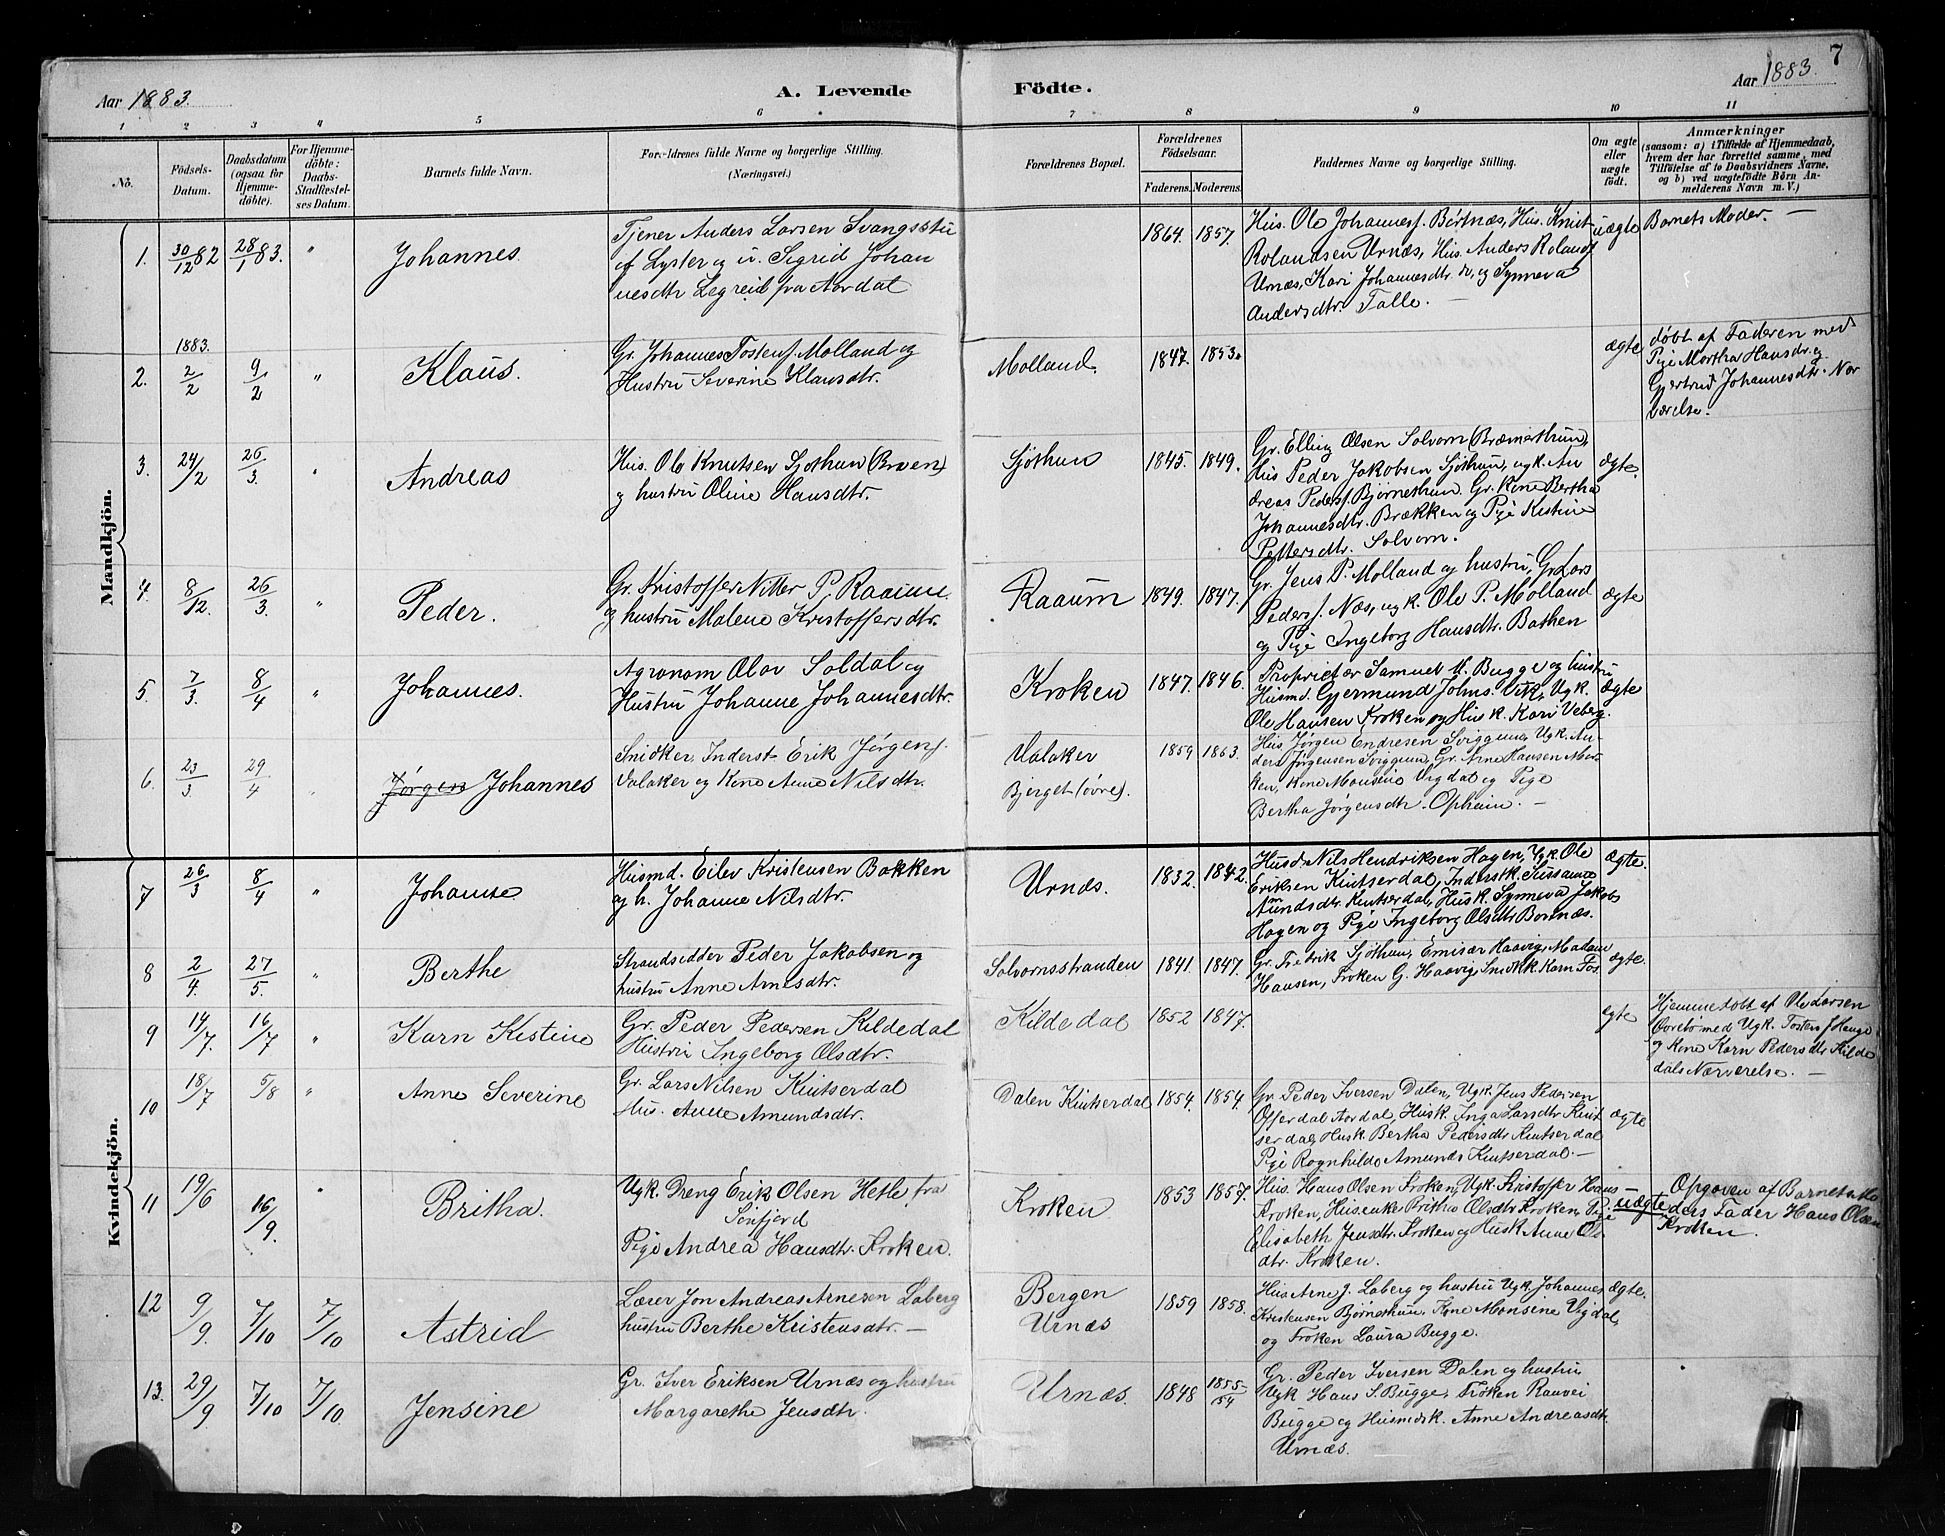 7
Aar 1883.
A. Levende Födte.
Aar 1883.
1 2 3 4 5 6 7 8 9 10 11
No.
Födsels-Datum.
Daabsdatum (ogsaa for Hjemme-döbte).
For Hjemme-döbte: Daabs-Stadfæstel-ses Datum.
Barnets fulde Navn.
Forældrenes fulde Navne og borgerlige Stilling.
(Næringsvei.)
Forældrenes Bopæl.
Forældrenes Födselsaar.
Faderens. Moderens.
Faddernes Navne og borgerlige Stilling.
Om ægte eller uægte födt.
Anmærkninger
(saasom: a) i Tilfælde af Hjemmedaab, hvem der har forrettet samme, med Tilföielse af to Daabsvidners Navne, og b) ved uægtefödte Börn An-melderens Navn m. V.)
Mandkjön.
1. 30/12 82 28/1 83. " Johannes.
Tjener Anders Larsen Svangsstu
af Lyster og u. Sigrid Johan
nesdtr Legreid fra Aordal
1864. 1857.
Hus. Ole Johannesf. Börtnæs, Hus. Knut
Rolandsen Urnæs, Hus. Anders Rolandf
Urnæs, Kari Johannesdtr. do, og Synneva
Andersdtr. Talle. —
uægte Barnets Moder. —
1883.
2. 2/2 9/2 " Klaus.
Gr. Johannes Tostenf. Molland og
Hustru Severine Klausdtr.
Molland. 1847. 1853.
ægte
döbt af Faderen med
Pige Martha Hansdr. og
Gjertrud Johannesdtr. Nær
værelse.
3. 24/2 26/3. " Andreas
Hus. Ole Knutsen Sjøthun (Broen)
og hustru Oline Hansdtr.
Sjøthun 1845. 1849.
Gr. Elling Olsen Solvorn (Bræmerthun),
Hus Peder Jakobsen Sjöthun, ugk. An
dreas Pedersf. Björnethun. Gr. Kone Bertha
Johannesdtr. Brækken og Pige Kistine
Pettersdtr. Solvorn.
ægte.
4. 8/12. 26/3. " Peder.
Gr. Kristoffer Nitter P. Raaum
og hustru Malene Kristoffersdtr.
Raaum 1849. 1847.
Gr. Jens P. Molland og hustru, Gr. Lars
Pedersf. Næs, ugk. Ole P. Molland
og Pige Ingeborg Hansdtr. Bathen
ægte
5. 7/3. 8/4 " Johannes.
Agronom Olav Soldal og
Hustru Johanne Johannesdtr.
Kroken 1847. 1846.
Proprietær Samuel H. Bugge og hustru
Husmd. Gjermund Johns. Vik, Ugk.
Ole Hansen Kroken og Husk. Kari Veberg.
ægte
6. 23/3 29/4 " Jørgen Johannes
Snidker Inderst Erik Jørgenf.
Valaker og Kone Anne Nilsdtr.
Valaker
Bjerget (övre).
1859 1863.
Hus Jørgen Endresen Sviggum, Ugk. An-
ders Jørgensen Sviggum, Gr. Arne Hansen Mor-
ken, Kone Monsine Vigdal og Pige
Bertha Jørgensdtr. Opheim. —
Kvindekjön.
7 26/3 8/4 " Johanne
Husmd. Eilev Kristensen Bakken
og h. Johanne Nilsdtr.
Urnæs. 1832. 1842.
Husd. Nils Hendriksen Hagen, Ugk. Ole
Eriksen Kintserdal, Inderstk. Sussanne
Amundsdtr. Kintserdal, Husk. Synneva Jakobs
Hagen og Pige Ingeborg Olsdtr. Bornæs.
ægte.
8 2/4. 27/5. " Berthe
Strandsidder Peder Jakobsen og
hustru Anne Arnesdtr.
Solvornsstranden 1841. 1847.
Gr. Fredrik Sjøthun, Emisær Haavig, Madam
Hansen, Frøken G. Haavig, Snidkk. Karn Tos.
ægte.
9 14/7. 16/7 " Karn Kistine
Gr. Peder Pedersen Kildedal
Hustru Ingeborg Olsdtr.
Kildedal 1852 1847.
egte
Hjemmedøbt af Ole Larsen
Øvrebø med Ugk. Tostenf. Hauge
og Kone Karn Pedersdtr. Kilde
dals Nærværelse. —
10 18/7 5/8 " Anne Severine
Gr. Lars Nilsen Kintserdal
Hus. Anne Amundsdtr.
Dalen Kintserdal 1854. 1854.
Gr. Peder Iversen Dalen, Ugk. Jens Pedersen
Offerdal Aordal, Husk. Inga Larsdtr. Kint
serdal, Husk. Bertha Pedersdtr Kintserdal
Pige Ragnhilde Amunds Kintserdal. —
ægte
11 19/6 16/9. " Britha.
Ugk. Dreng Erik Olsen Hetle, fra
Sönfjord
Pige Andrea Hansdtr. Kroken.
Kroken 1853 1857.
Hus. Hans Olsen Kroken, Ugk. Kristoffer Hans
Kroken, Husenke Brithe Olsdtr Kroken, Pige
Elisabeth Jensdtr. Kroken og Husk. Anne Ols
dtr. Kroken.
uægte
Opgaven af Barnets Mo
ders Fader Hans Olsen
Kroken.
12 9/9. 7/10 7/10 Astrid
Lærer Jon Andreas Arnesen Laberg
hustru Berthe Kristensdtr. —
Bergen
Urnæs
1859 1858.
Hus Arne J. Laberg og hustru Ugk. Johannes
Kristensen Björnethun, Kone Monsine Vigdal,
og Frøken Laura Bugge.
ægte.
13. 29/9 7/10 7/10. Jensine
Gr. Iver Eriksen Urnæs og hustru
Margarethe Jensdtr.
Urnæs. 1848 1855/54
Gr. Peder Iversen Dalen og hustru
Ugk Hans S. Bugge, Frøken Rauvei
Bugge og Husmdsk. Anne Andreasdtr.
Urnæs.